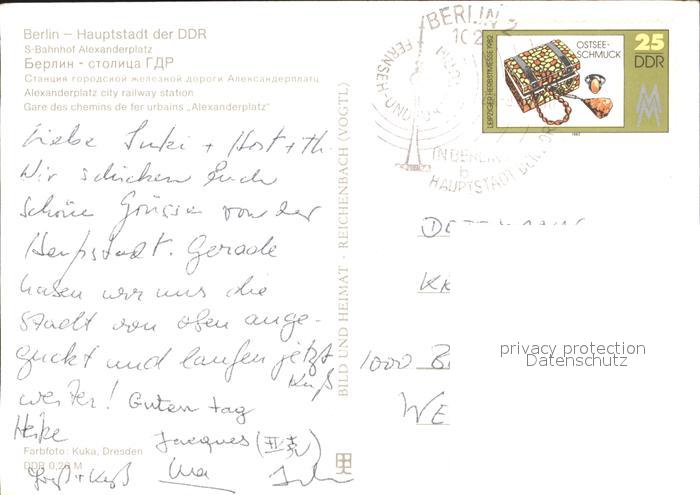 Berlin – Hauptstadt der DDR
S-Bahnhof Alexanderplatz
Берлин - столица ГДР
Станция городской железной дороги Александерплатц
Alexanderplatz city railway station
Gare des chemins de fer urbains „Alexanderplatz“
Liebe Suki + Horst + Th.
Wir schicken Euch
schöne Grüsse von der
Hauptstadt. Gerade
haben wir uns die
Stadt von oben ange-
guckt und laufen jetzt
weiter! Guten tag
Kuß
Heike
Jacques
Gruß + Kuß
Farbfoto: Kuka, Dresden
DDR 0,20 M
BILD UND HEIMAT · REICHENBACH (VOGTL)
BERLIN 2
102
FERNSEH- UND
IN BERLIN
b
HAUPTSTADT DER DDR
LEIPZIGER HERBSTMESSE 1982
OSTSEE-
SCHMUCK
25
DDR
MM
1982
1000 B
WE
privacy protection
Datenschutz